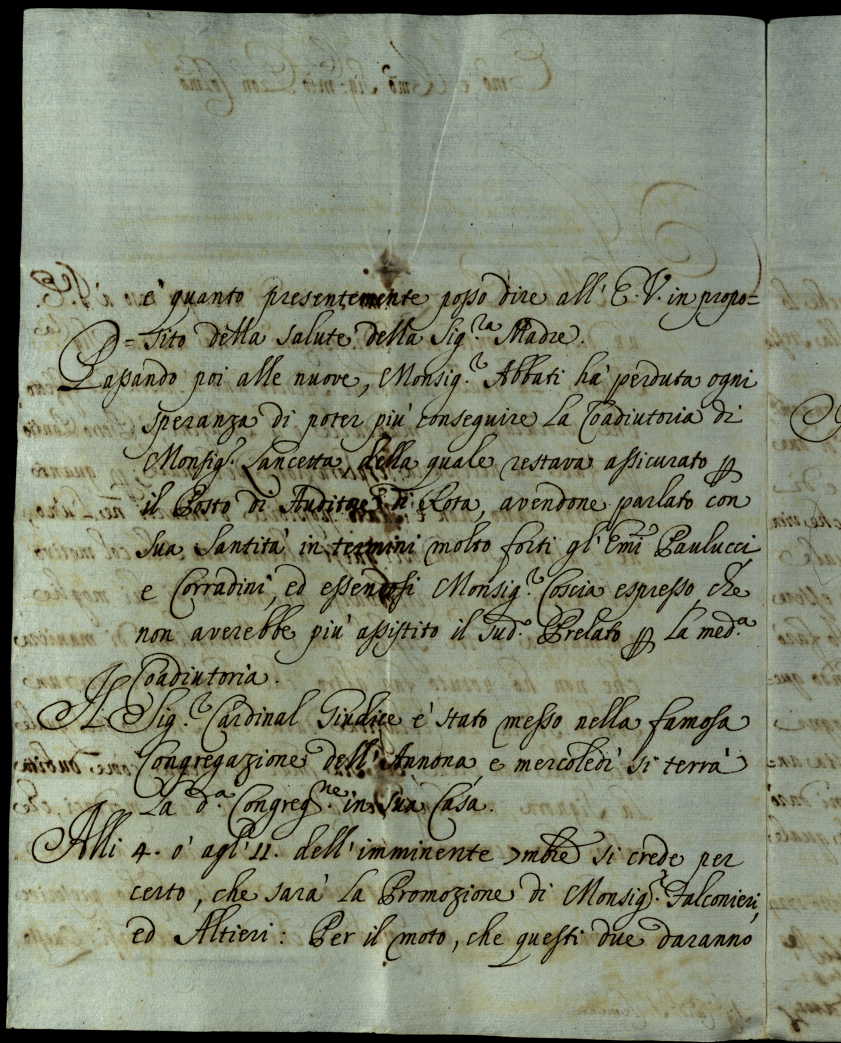 e' quanto presentemente posso dire all' E. V. in propo=
=sito della salute della Sig.ra Madre.
Passando poi alle nuove, Monsig.r Abbati hà perduta ogni
speranza di poter più conseguire la Coadiutoria di
Monsig.r Lancetta, della quale restava assicurato p
il Posto di Auditore di Rota, avendone parlato con
sua Santità in termini molto forti gl' Emi Paulucci
e Corradini, ed essendosi Monsig.r Coscia espresso, che
non averebbe più assistito il sud.o Prelato p la med.a
Coadiutoria.
Il Sig.r Cardinal Giudice è stato messo nella famosa
Congregazione dell' Annona, e mercoledì si terrà
la d.a Congreg.ne in sua Casa.
Alli 4. ò agl' 11. dell' imminente Xmbre si crede per
certo, che sarà la Promozione di Monsig.r Falconieri,
ed Altieri: Per il moto, che questi due daranno